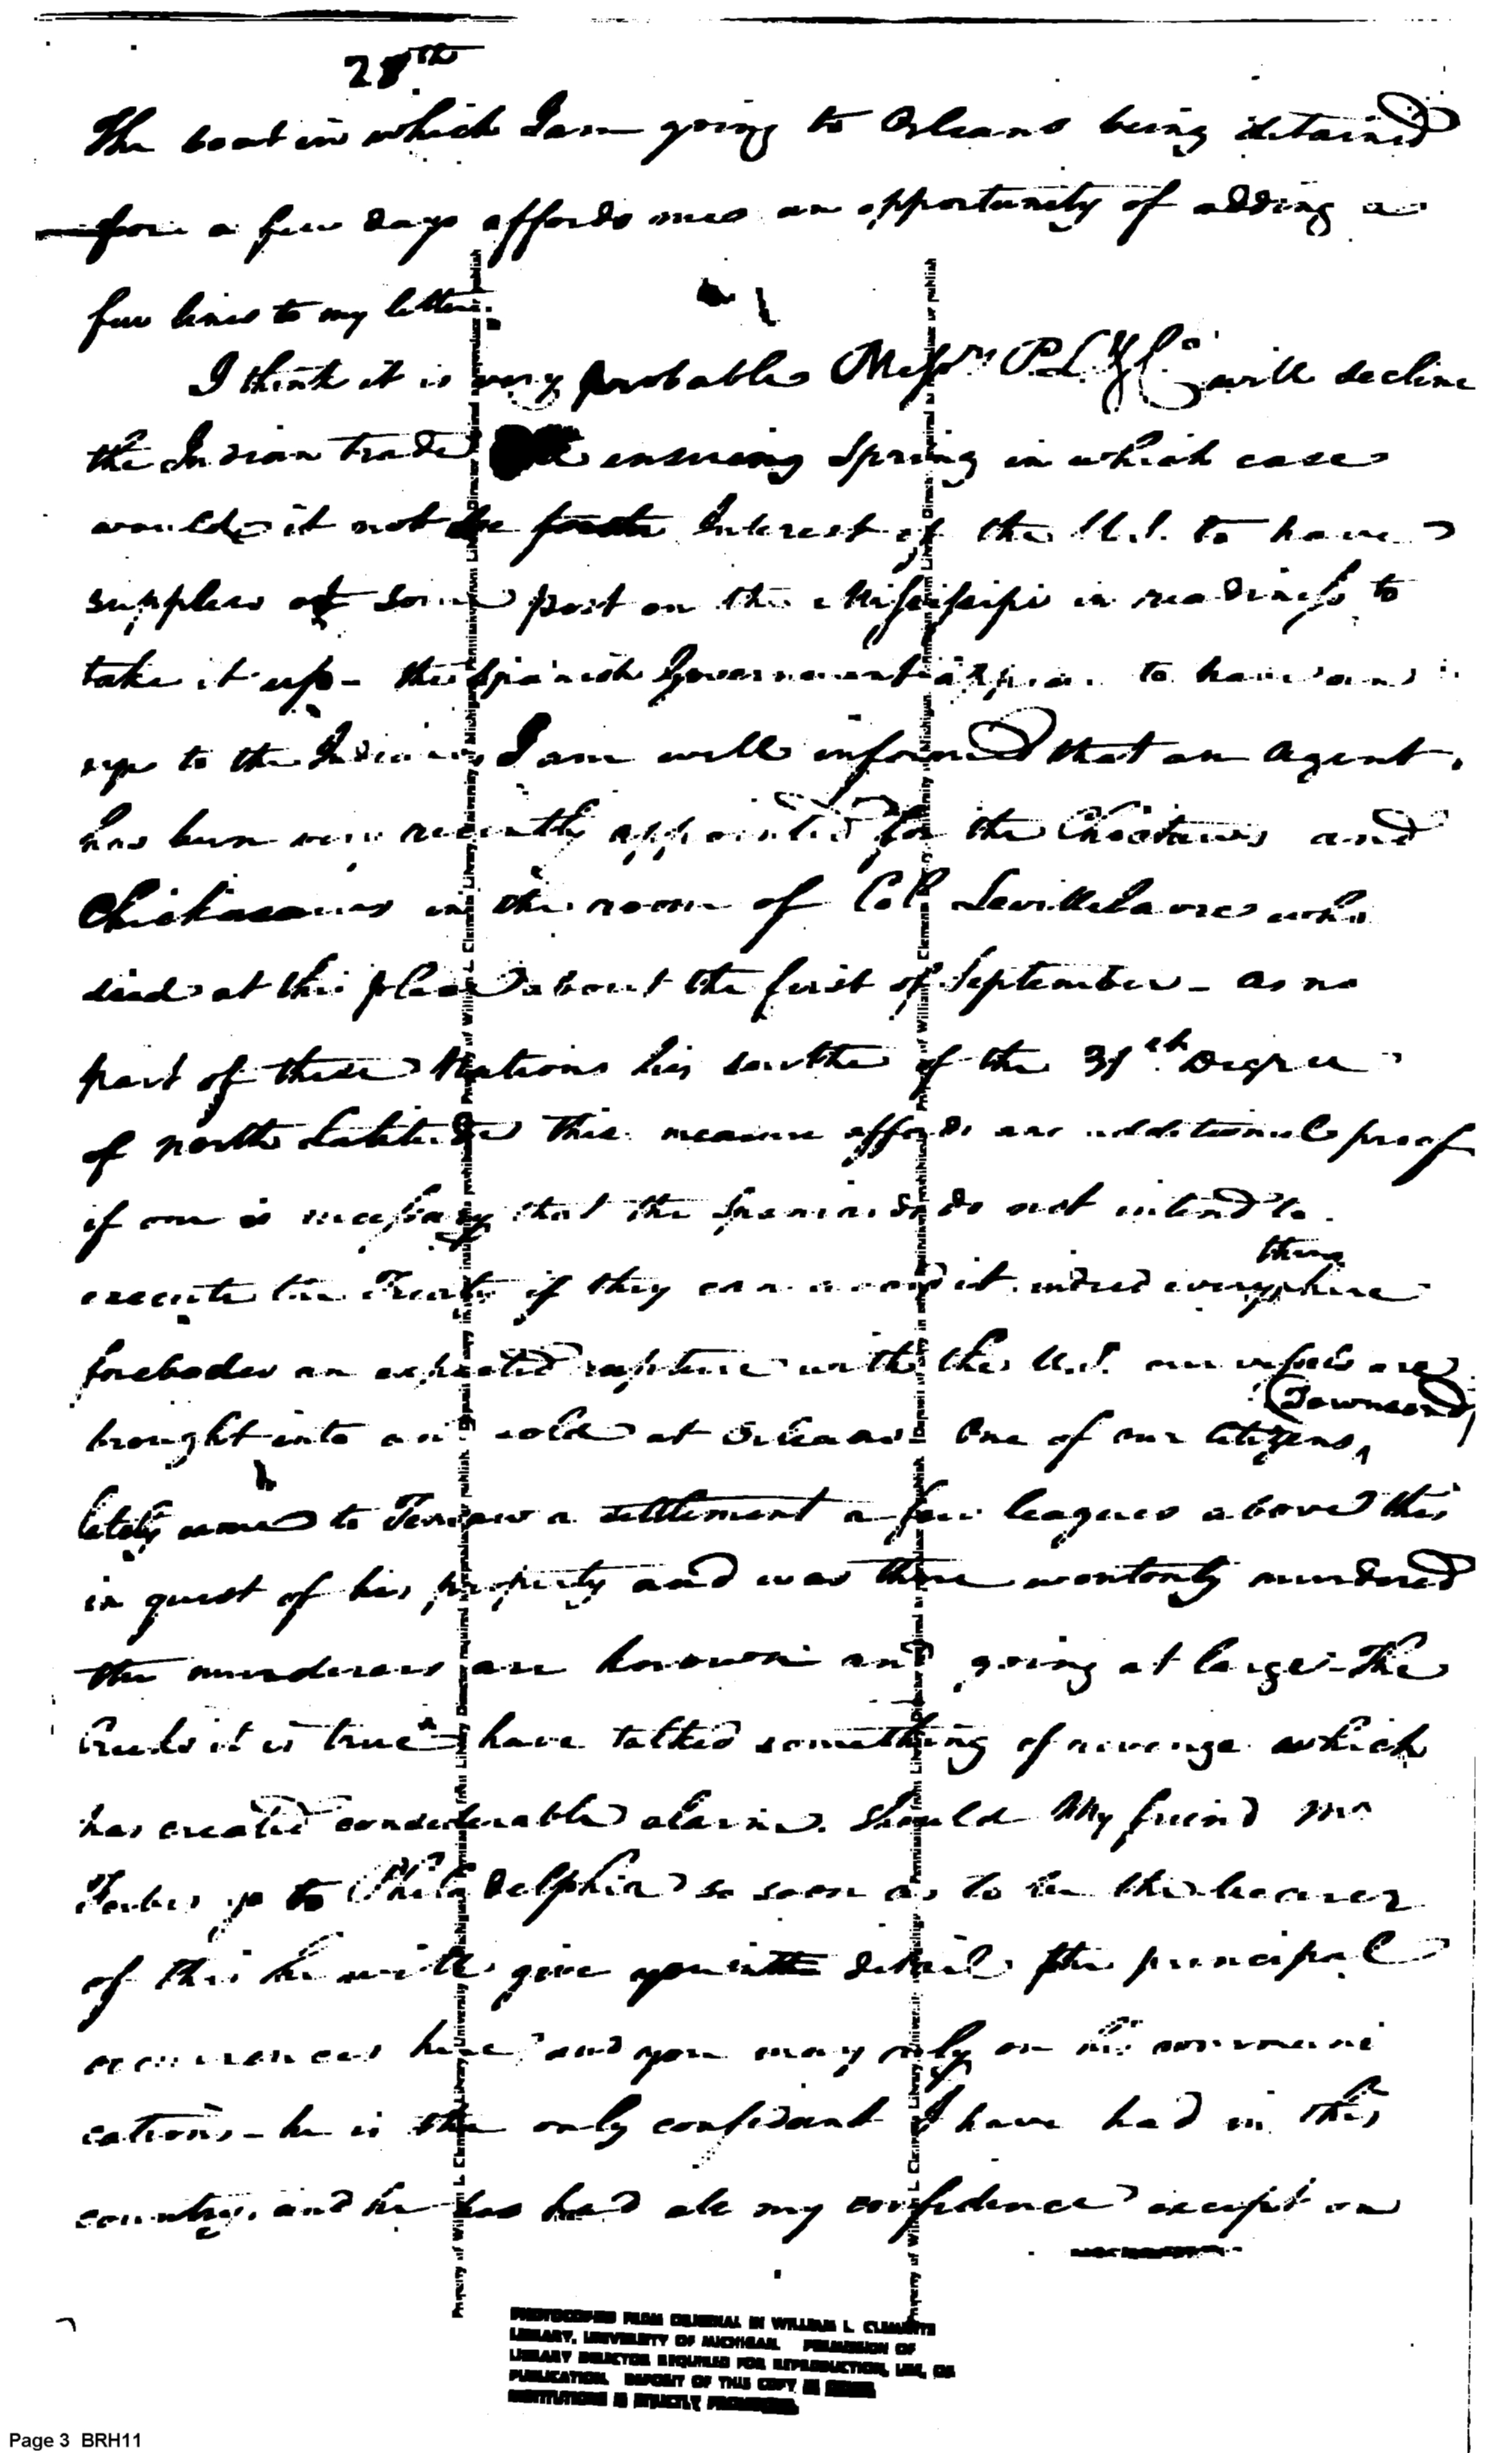 28th
The boat in which I am going to Orleans being detained
for a few days affords mee an opportunity of adding a
few lines to my letter.
I think it is very probable Messrs P.L. & Co will decline
the Indian trade ensuing Spring in which case
would it not be Interest of the U.S. to have
supplies at some post on the Missisippi in readiness to
take it up - the Spanish Government appear to have an
eye to the Indians I am well informed that an Agent
has been very recently appointed for the Choctaws and
Chickasaws in the room of Col. who
died at this place about the first of September - as no
part of these Nations lies southe of the 31st Degree
of north Latitude this measure affords an additional proof
if one is necessary that the Spaniards do not intend to
thing
execute the Treaty if they can avoid it indeed every here
forebodes an expected rupture with the U.S. our vessels are
Townsend
brought into and sold at Orleans One of our Citizens,
lately came to Tensaw a settlement a few leagues above this
in quest of his property and was there wontonly murdered
the murderers are known and going at large - The
Creeks it is true have talked something of revenge which
has created considerable alarm. Should My friend Mr
Forbes go to Philadelphia so soon as to be the bearer
of this he will give you in detail the principal
occurrances here and you may rely on his communi
cations - he is the only confidant I have had in this
country, and he has had ale my confidence except on
PHOTOCOPIED FROM ORIGINAL IN WILLIAM L. CLEMENTS
LIBRARY, UNIVERSITY OF MICHIGAN. PERMISSION OF
LIBRARY DIRECTOR REQUIRED FOR REPRODUCTION, USE, OR
PUBLICATION. DEPOSIT OF THIS COPY IN OTHER
INSTITUTIONS IS STRICTLY PROHIBITED.
Page 3 BRH11